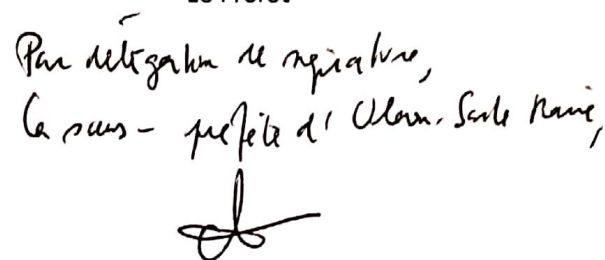 Le Préfet
Par délégation de signature,
La sous-préfète d'Oloron-Sainte-Marie,